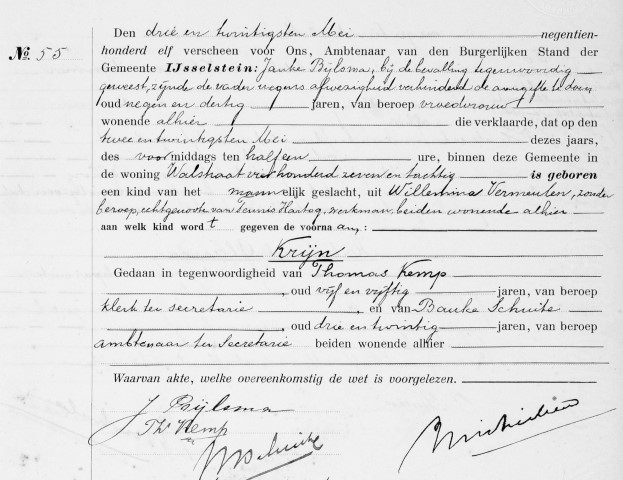 Den drie en twintigsten Mei negentien-
No. 55 honderd elf verscheen voor Ons, Ambtenaar van den Burgerlijken Stand der
Gemeente IJsselstein: Janke Bijlsma, bij de bevalling tegenwoordig
geweest, zijnde de vader wegens afwezigheid verhinderd de aangifte te doen
oud negen en dertig jaren, van beroep vroedvrouw
wonende alhier die verklaarde, dat op den
twee en twintigsten Mei dezes jaars,
des voormiddags ten half een ure, binnen deze Gemeente in
de woning Walstraat vierhonderd zeven en tachtig is geboren
een kind van het mannelijk geslacht, uit Willemina Vermeulen, zonder
beroep, echtgenoote van Teunis Hartog, werkman, beiden wonende alhier
aan welk kind wordt gegeven de voornaam:
Krijn
Gedaan in tegenwoordigheid van Thomas Kemp
, oud vijf en vijftig jaren, van beroep
klerk ter secretarie, en van Bauke Schuite
, oud drie en twintig jaren, van beroep
ambtenaar ter Secretarie beiden wonende alhier
Waarvan akte, welke overeenkomstig de wet is voorgelezen.
J Bijlsma
Ths Kemp
BSchuite